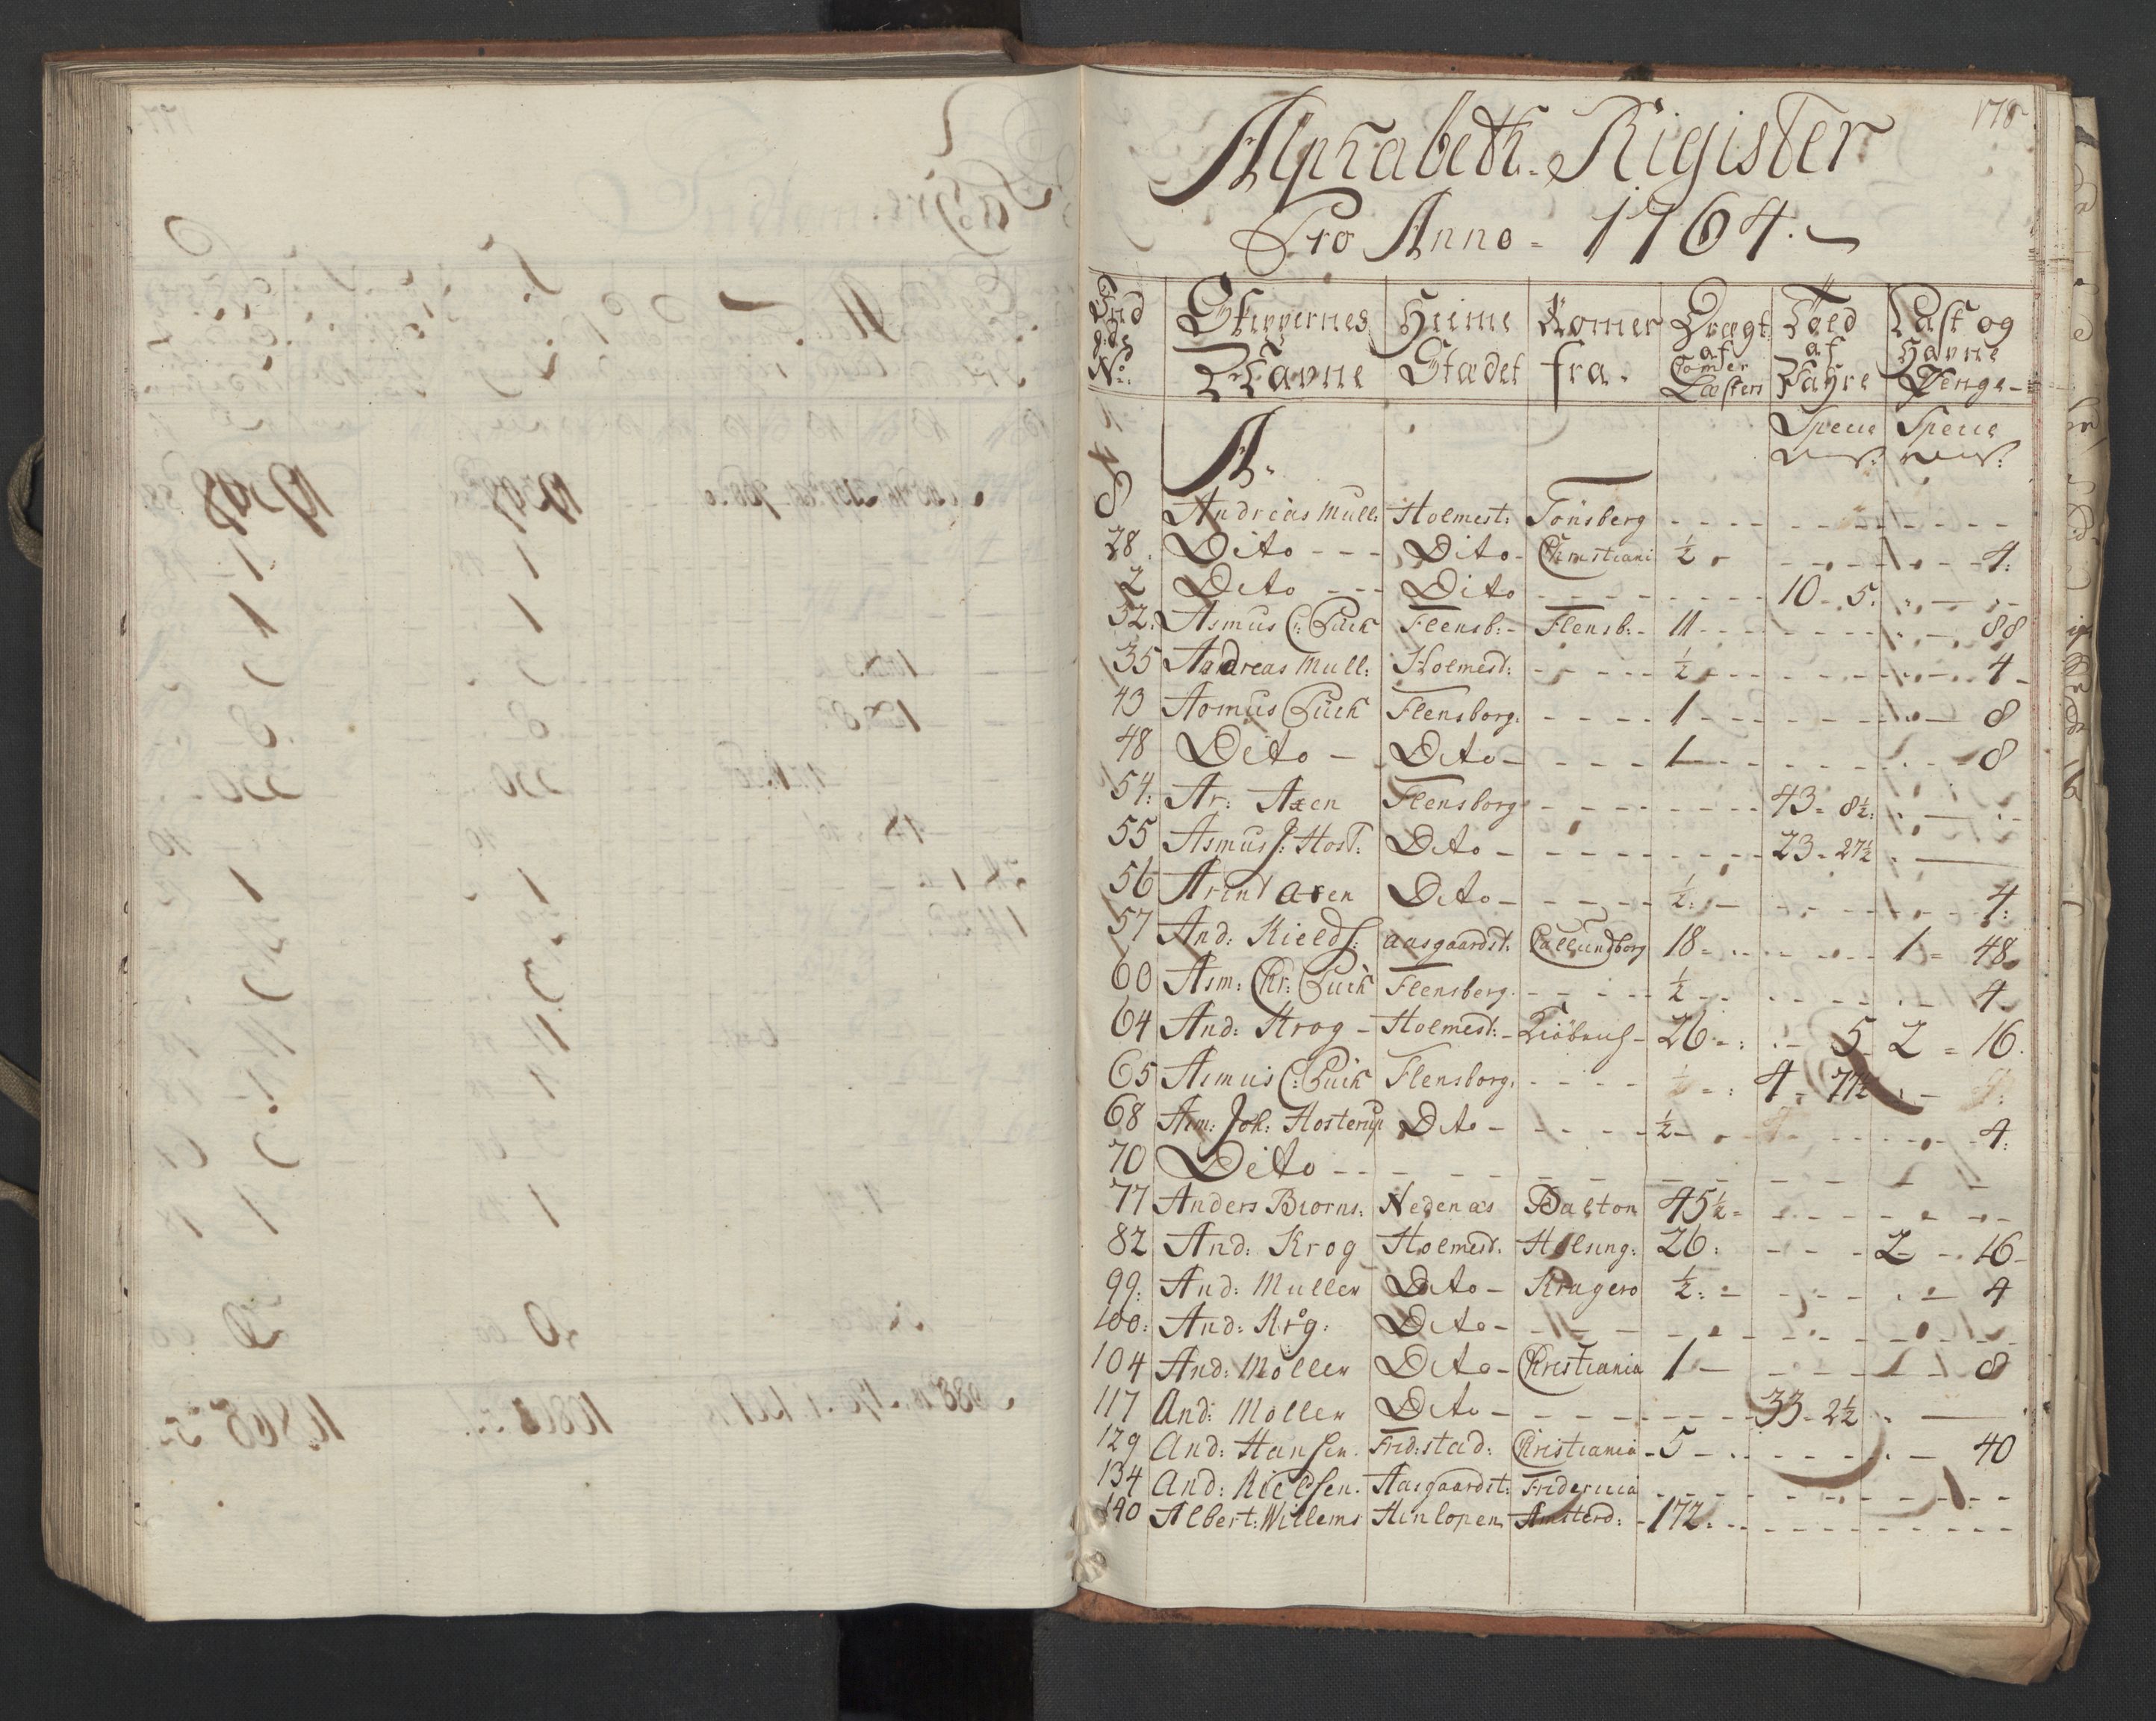 178
Alphabeth. Rigister
Pro Anno - 1764.
Ind g: des No: | Skippernes Nafne | Heime Stædet | Komer fra. | Dragt af Tomer Læster | Told af Fahre | Last og Havne Penge
A. Specie Specie
8 Andreas Mull: Holmest: Tönsberg - - - -
28. Dito - - - Dito - Christiani ½ - - - 4:
2 Dito - - - Dito - - - - 10 - 5. - -
32: Asmus C: Puck Flensb: - Flensb: - 11 - - - 88
35 Andreas Mull: Holmest: - - - - ½ - - - 4 -
43 Asmus Puck Flensborg. - - - - 1 - - - 8
48 Dito - Dito - - - - - 1 - - - 8
54: Ar: Axen Flensborg - - - - 43 - 8½: - -
55 Asmus J: Host: Dito - - - - - 23 - 27½ . -
56 Arent Axen Dito - - - - - ½: - - - 4:
57 And: Kields: Aasgaardst: Callundborg 18 - - - 1 - 48
60 Asm: Chr: Puck Flensborg. - - - - ½ - - - 4
64 And: Krog - Holmest: - Kiöbenh - 26 - : - 5 2 - 16.
65 Asmus C: Puck Flensborg. - - - - 4 - 7½ - -
68 Asm: Joh: Hosterup Dito - - - - - ½ - - - 4:
70 Dito - - - - - -
77 Anders Biorns: Nedenæs Dalton 45½ - - - -
82 And: Krog Holmest. Helsing: 26: - - - 2 - 16 -
99: And: Muller Dito - Kragero ½: - - - - 4
100: And: Krog: Dito - - - - -
104 And: Möller Dito - Christiania 1 - - - - 8
117 And: Möller Dito - - - - - 33 - 2½ . -
129 And: Hansen. Fridstad: Christiania - 5 - - - 40
134 And: Kielsen. Aasgaardst: Fridericia - - - -
140 Albert: Willems Hinlopen Amsterd: - 172. - - - -